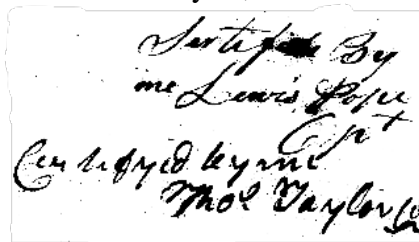 Sertifed By
me Lewis Pope
Cpt
Certifyed by me
Thos Taylor Co